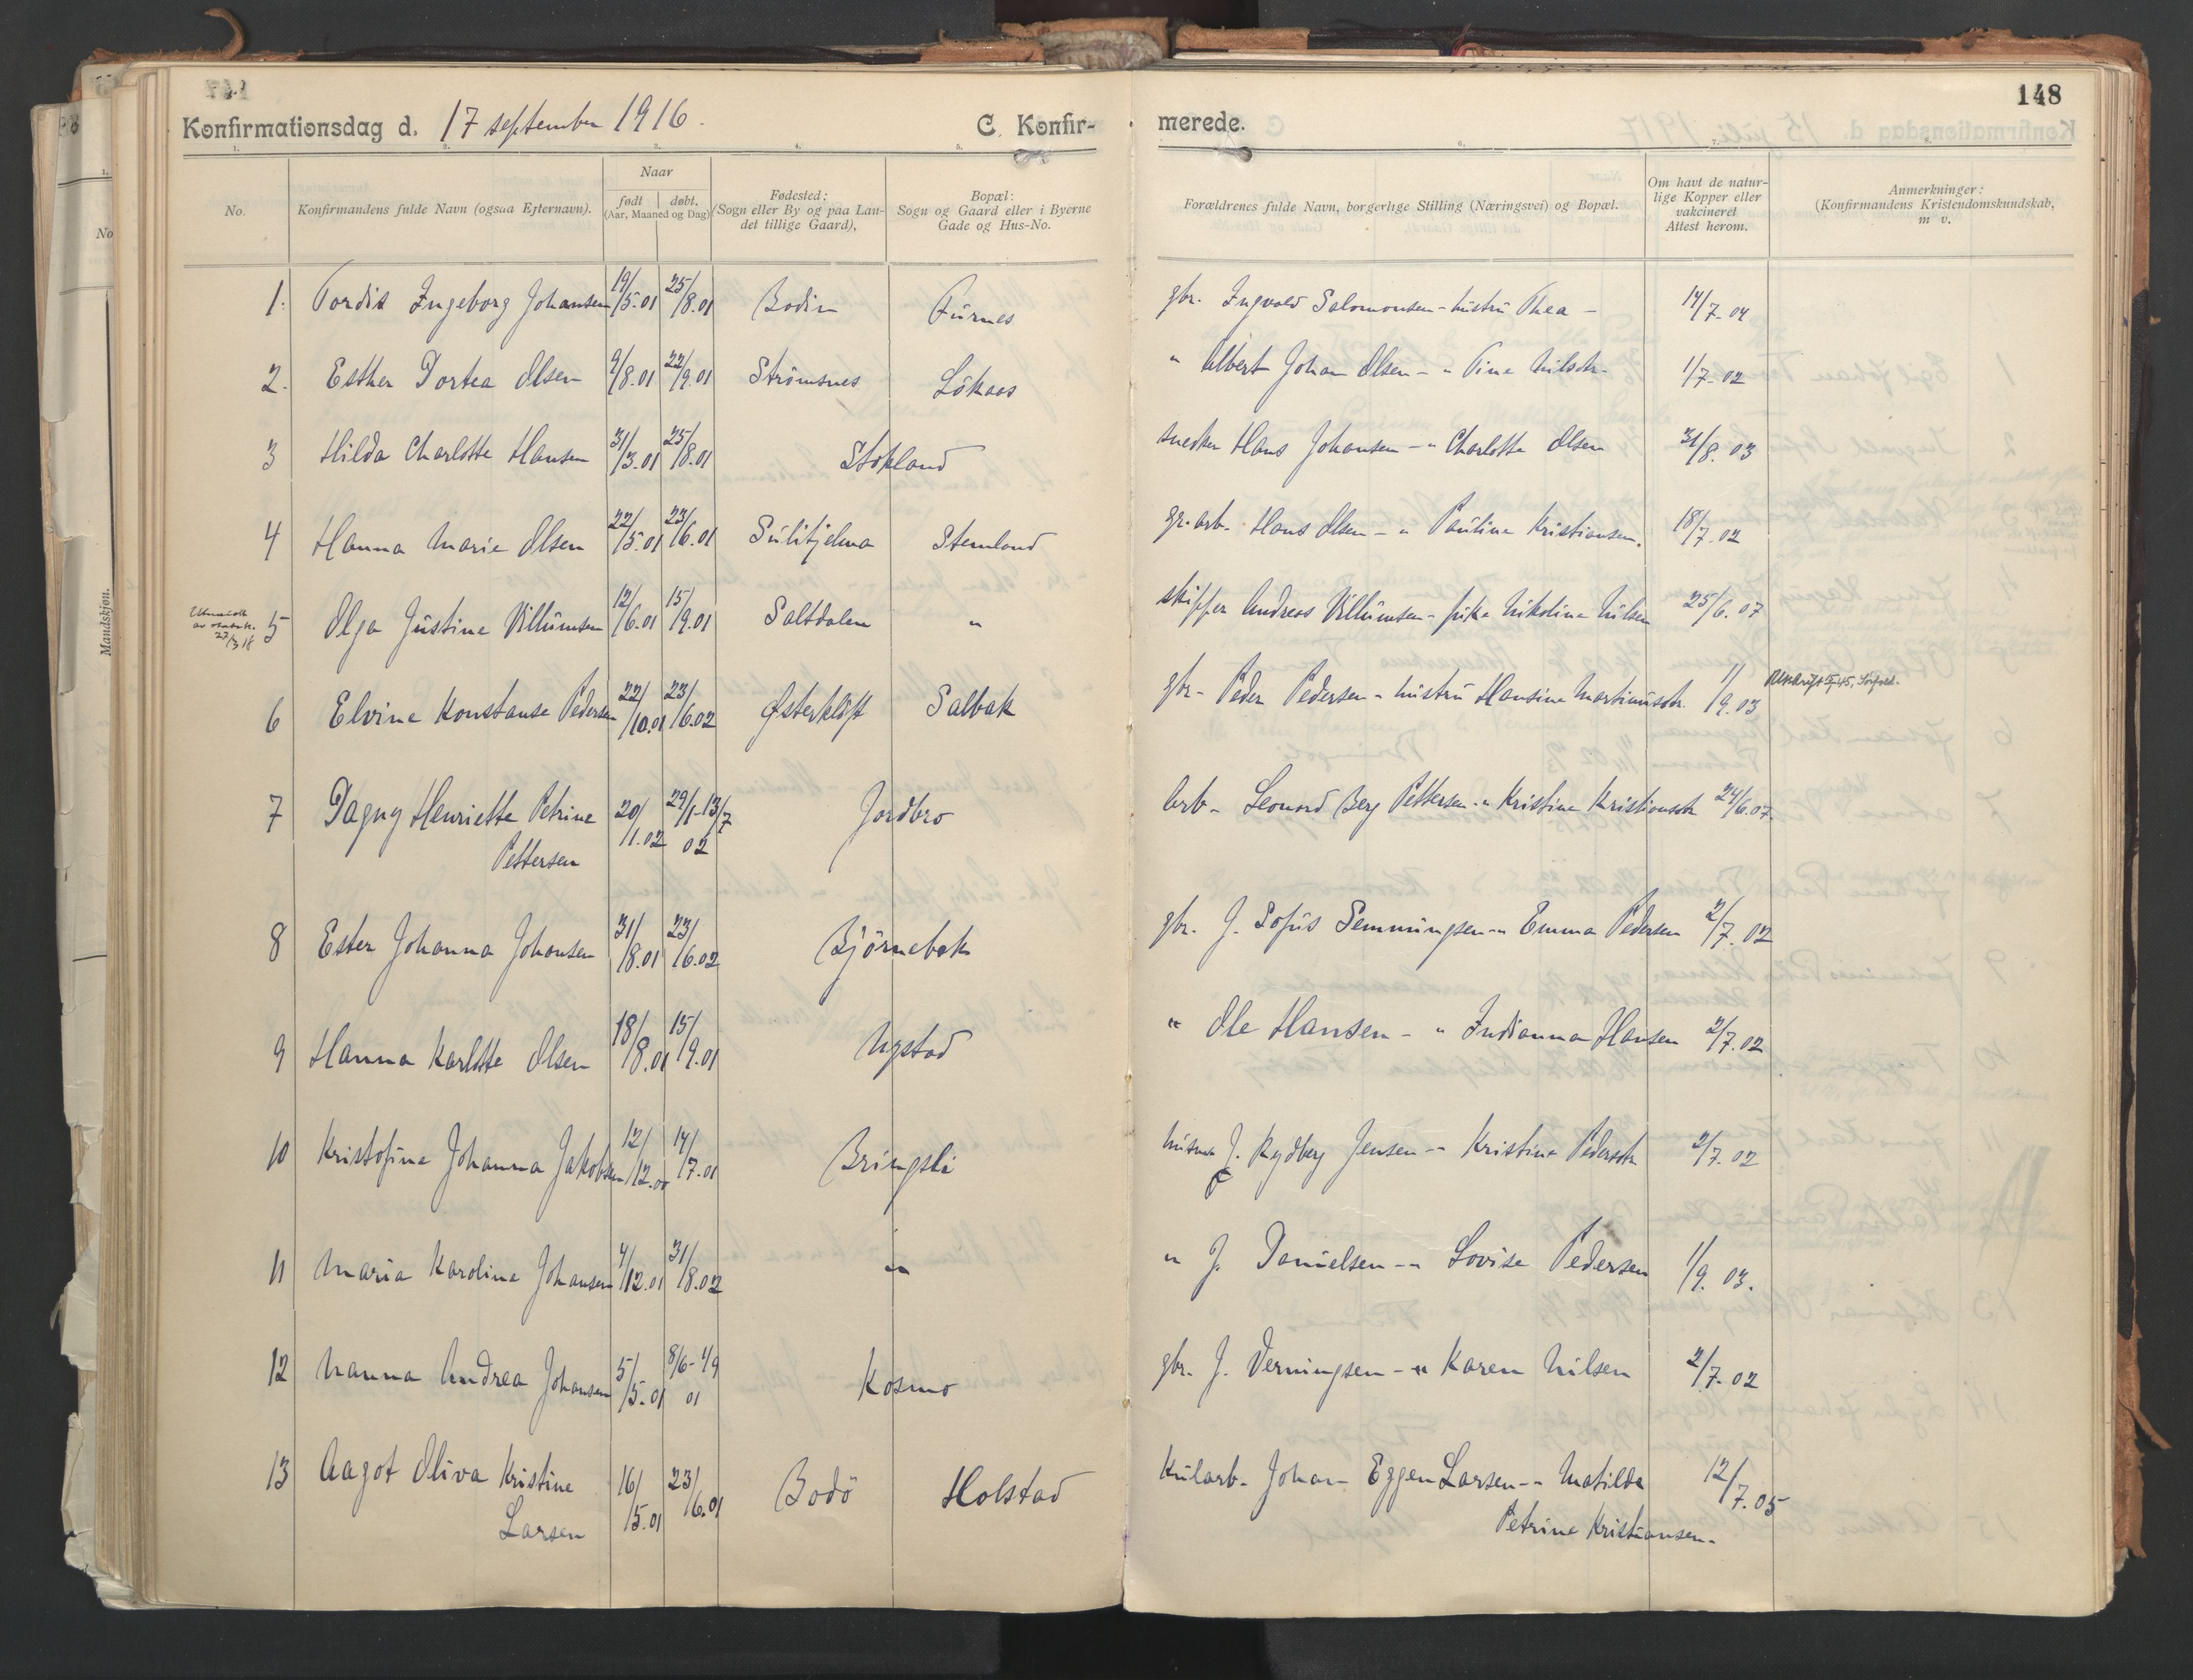 148
Konfirmationsdag d. 17 september 1916. C. Konfir- merede.
1. 2. 3. 4. 5. 6.
No.
Konfirmandens fulde Navn (ogsaa Efternavn).
Naar
født døbt.
(Aar, Maaned og Dag)
Fødested:
(Sogn eller By og paa Lan-
det tillige Gaard),
Bopæl:
Sogn og Gaard eller i Byerne
Gade og Hus-No.
Forældrenes fulde Navn, borgerlige Stilling (Næringsvei) og Bopæl.
Om havt de natur-
lige Kopper eller
vakcineret
Attest herom.
Anmerkninger:
(Konfirmandens Kristendomskundskab,
m v.
No
Mandskjøn.
1. Tordis Ingeborg Johansen 19/5.01 25/8.01 Bodin Furnes gbr. Ingvald Salomonsen - hustru Thea - 14/7-04
2. Esther Dortea Olsen 9/8.01 22/9.01 Strömsnes Lökaas " Albert Johan Olsen - " Tina Nilsdtr. 1/7-02
3 Hilda Charlotte Hansen 31/3.01 25/8.01 Stokland snedker Hans Johansen - " Charlotte Olsen 31/8.03
4 Hanna Marie Olsen 22/5.01 23/6.01 Sulitjelma Stemland gr.arb. Hans Olsen - " Pauline Kristiansen. 18/7-02
27/3 18
5 Olga Justine Villumsen 12/6.01 15/9.01 Saltdalen " skipper Andreas Villumsen - pike Nikoline Nilsen 25/6.07
6 Elvine Konstanse Pedersen 22/10.01 23/6.02 Østerkløft Salbak gbr - Peder Pedersen - hustru Hansine Martinusdtr. 1/9.03
7 Dagny Henriette Petrine 20/1.02 29/1-13/7 02 Jordbro Arb - Leonard Berg Pettersen - " Kristine Kristiansdtr 24/6.07.
Pettersen
8 Ester Johanna Johansen 31/8.01 23/6.02 Björnebak gbr. J. Sofus Semmingsen - " Emma Pedersen 2/7.02
9 Hanna Karlotte Olsen 18/8.01 15/9.01 Nystad " Ole Hansen - " Indianna Hansen 2/7.02
10 Kristofine Johanna Jakobsen 12/12.00 14/7.01 Bringsli husm J. Rydberg Jensen - " Kristine Pedersdtr 2/7.02
11 Maria Karolina Johansen 4/12.01 31/8.02 " " J. Danielsen - " Lovise Pedersen 1/9.03.
12 Nanna Andrea Johansen 5/5.01 8/6-1/9 01 Kosmo gbr. J. Verningsen - " Karen Nilsen 2/7-02
13 Aagot Oliva Kristine 16/5.01 23/6.01 Bodö Holstad Kularb. Johan Eggen Larsen - " Matilda 12/7.05
Larsen Petrine Kristiansen.